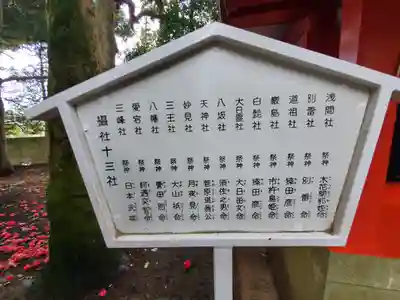 浅間社 祭神 木花開耶姫命
別雷社 祭神 別雷命
道祖社 祭神 猿田彦命
厳島社 祭神 市杵島姫命
白髭社 祭神 猿田彦命
大日霊社 祭神 大日孁女命
八坂社 祭神 須佐之男命
天神社 祭神 菅原道真公
妙見社 祭神 月夜見命
三王社 祭神 大山祇命
八幡社 祭神 誉田別命
愛宕社 祭神
三峰社 祭神 日本武尊
摂社十三社